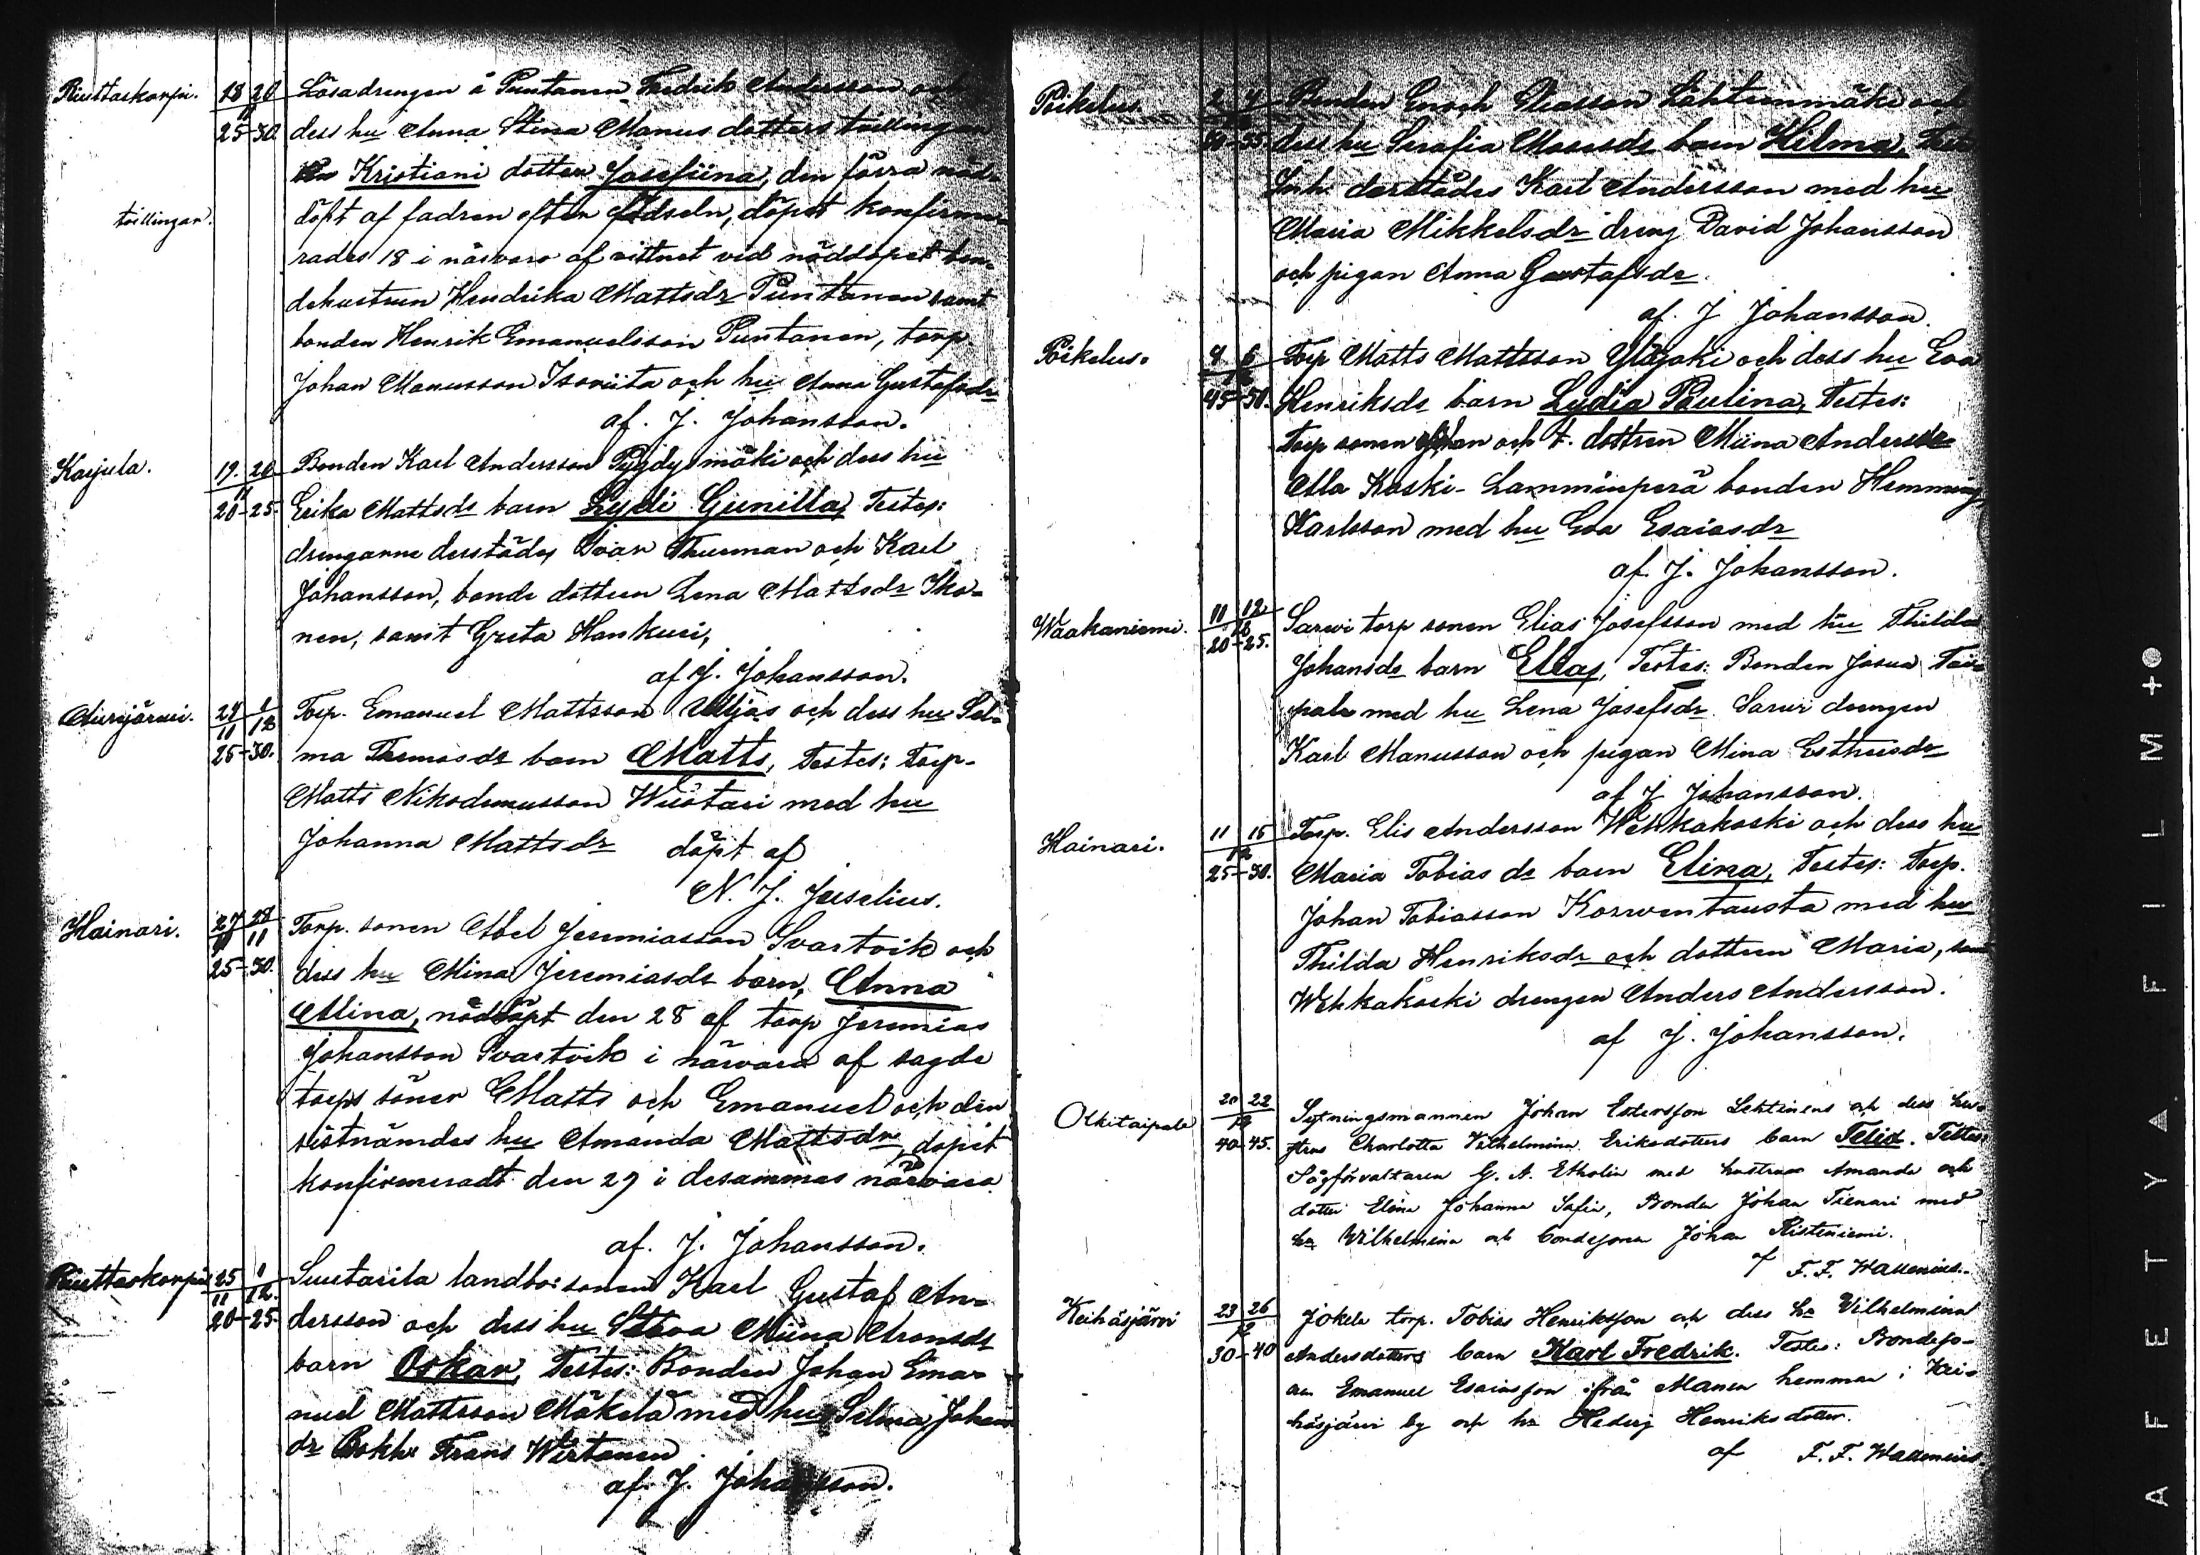 Riuttaskorpi. 18 20 Lösadrengen å Puntanen Fredrik Andersson och
11
25-30. dess hu Anna Stina Manus dotters tvillingar
Kristiani dotter Josefiina, den förra nöd-
tvillingar. döpt af fadren efter födseln, döpet konfirme-
rades 18 i närvaro af vittnet vid nöddopet bon-
dehustrun Hendrika Mattsdr Puntanen samt
bonden Henrik Emanuelsson Puntanen, torp.
Johan Manusson Isoniita och hu Anna Gustafsdr
af. J. Johansson.
Karjula. 19. 20 Bonden Karl Andersson Pygdysmäki och dess hu
11
20-25. Erika Mattsdr barn Lydi Gunilla, Testes:
drengarne derstädes Ivar Thurman och Karl
Johansson, bonde dottren Lena Mattsdr Iko-
nen, samt Greta Honkuri,
af J. Johansson.
Auvijärvi. 24 1 Torp. Emanuel Mattsson Äijäs och dess hu Sel-
11 12
25-30. ma Thomasdr barn Matts, Testes: Torp.
Matts Nikodemusson Wiistari med hu
Johanna Mattsdr döpt af
N. J. Juselius.
Hainari. 27 28 Torp. sonen Abel Jeremiasson Svartvik och
11 11
25-30. dess hu Mina Jeremiasdr barn, Anna
Alina, nöddöpt den 28 af torp Jeremias
Johansson Svartvik i närvara af sagde
torps söner Matts och Emanuel och den
sistnämdes hu Amanda Mattsdr, döpet
konfirmeradt den 29 i desammas närvara
af. J. Johansson.
Riuttaskorpi 25 1 Suutarila landbo: sonen Karl Gustaf An-
11 12.
20-25. dersson och dess hu Miina Aronsdr
barn Oskar, Testes: Bonden Johan Ema-
nuel Mattsson Mäkelä med hu Selma Johans
dr Bokh: Frans Wirtanen
af. J. Johansson.
Poikelus. 2 4 Bonden Enoch Eliasson Lähteenmäki och
12
50-55. dess hu Serafia Mosesdr barn Hilma, Test:
Inh. derstädes Karl Andersson med hu
Maria Mikkelsdr dreng David Johansson
och pigan Anna Gustafsdr.
af. J Johansson.
Poikelus. 4 6 Torp Matts Mattsson Ylöjoki och dess hu Eva
12
45-50. Henriksdr barn Lydia Paulina, Testes:
Torp sonen Johan och t. dottren Miina Andersdr
Ala Koski- Lamminperä bonden Hemming
Karlsson med hu Eva Esaiasdr
af. J. Johansson.
Waakaniemi. 11 12 Sarvi torp sonen Elias Josefsson med hu Thilda
12
20-25. Johansdr barn Elias, Testes: Bonden Josua Tai-
pale med hu Lena Josefsdr. Sarvi drengen
Karl Manusson och pigan Mina Esthersdr
af J Johansson.
Hainari. 11 15 Torp. Elis Andersson Wehkakoski och dess hu
12
25-30. Maria Tobias dr barn Elina, Testes: Torp.
Johan Tobiasson Korventausta med hu
Thilda Henriksdr och dottren Maria, samt
Wehkakoski drengen Anders Andersson.
af J. Johansson.
Olkitaipale 20 22 Sytningsmannen Johan Estersson Lehtinens och dess hu-
12
40-45. strus Charlotta Vilhelmina Eriksdotters barn Felix. Testes:
Sågförvaltaren G. A. Etholin med hustrun Amanda och
dotter Elina Johanna Sofia, Bonden Johan Tienari med
hu Wilhelmina och bondesonen Johan Ristiniemi.
af F. F. Wallenius.
Keihäsjärvi 23 26 Jokela torp. Tobias Henriksson och dess hu Vilhelmina
12
30-40 Andersdotters barn Karl Fredrik. Testes: Bondeso-
nen Emanuel Esaiasson ifrån Manen hemman i Kei-
häsjärvi by och hu Hedvig Henriksdotter.
af F. F. Wallenius
AFETYA FILM